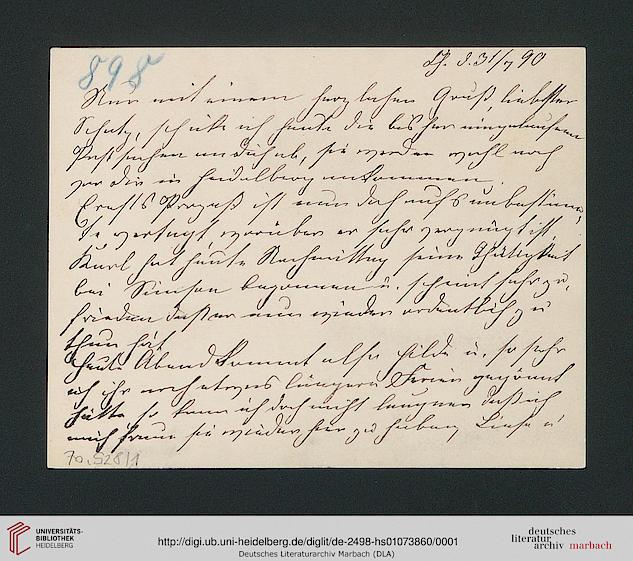 898
Ch. d. 31/7 90
Nur mit einem herzlichen Gruß, liebster
Schatz, schicke ich heute die bisher eingelaufenen
Postsachen an Dich ab, sie werden wohl noch
vor Dir in Heidelberg ankommen.
Ernsts Prozeß ist nun doch aufs unbestimmte
vertagt worüber er sehr vergnügt ist.
Karl hat heute Nachmittag seine Thätigkeit
bei Simson begonnen u. scheint sehr zu-
frieden daß er nun wieder ordentlich zu
thun hat
Heute Abend kommt also Hilde u. so sehr
ich ihr noch etwas längere Ferien gegönnt
hätte so kann ich doch nicht leugnen daß ich
mich freue sie wieder hier zu haben. Liese u
70.528/1
UNIVERSITÄTS-
BIBLIOTHEK
HEIDELBERG
http://digi.ub.uni-heidelberg.de/diglit/de-2498-hs01073860/0001
Deutsches Literaturarchiv Marbach (DLA)
deutsches
literatur
archiv marbach